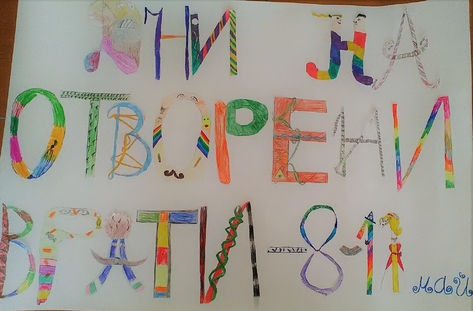 ДНИ НА
ОТВОРЕНИ
ВРАТИ - 8-11 май